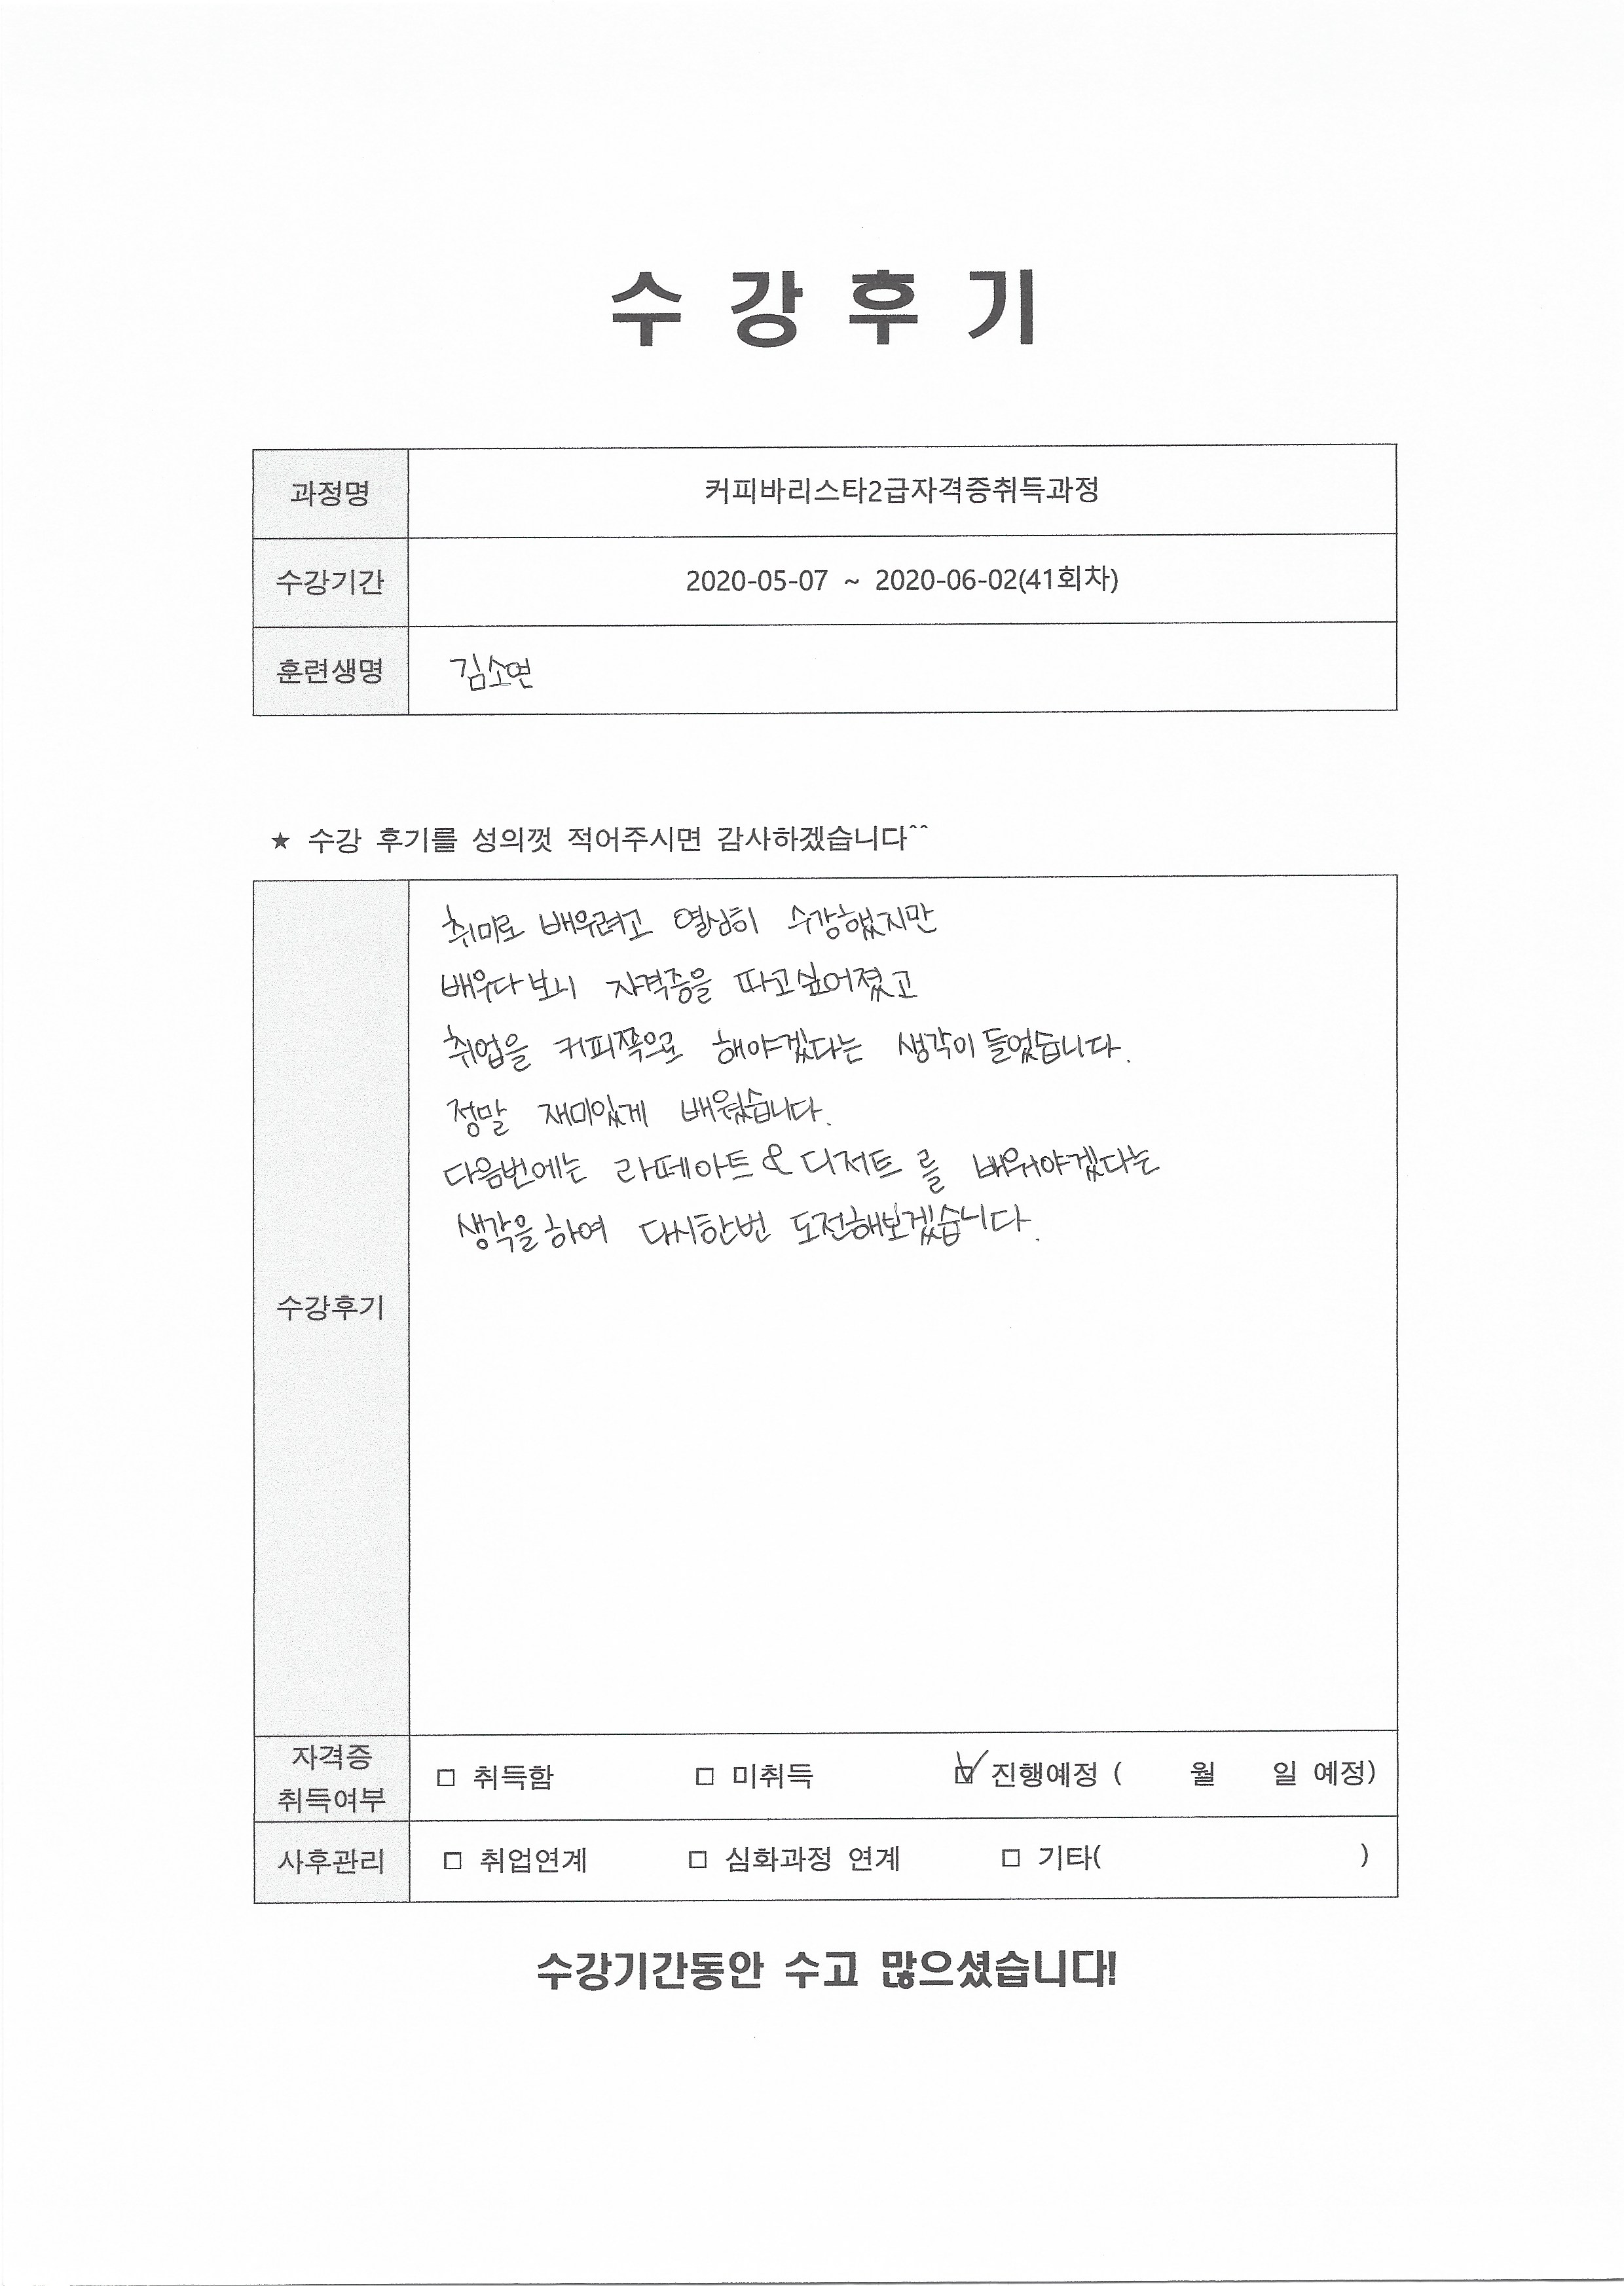 수 강 후 기
과정명 커피바리스타2급자격증취득과정
수강기간 2020-05-07 ~ 2020-06-02(41회차)
훈련생명 김소연
★ 수강 후기를 성의껏 적어주시면 감사하겠습니다^^
취미로 배우려고 열심히 수강했지만
배우다보니 자격증을 따고싶어졌고
취업을 커피쪽으로 해야겠다는 생각이 들었습니다.
정말 재미있게 배웠습니다.
다음번에는 라떼아트 & 디저트를 배워야겠다는
생각을하여 다시한번 도전해보겠습니다.
수강후기
자격증
취득여부 □ 취득함 □ 미취득 ☑ 진행예정 ( 월 일 예정)
사후관리 □ 취업연계 □ 심화과정 연계 □ 기타( )
수강기간동안 수고 많으셨습니다!